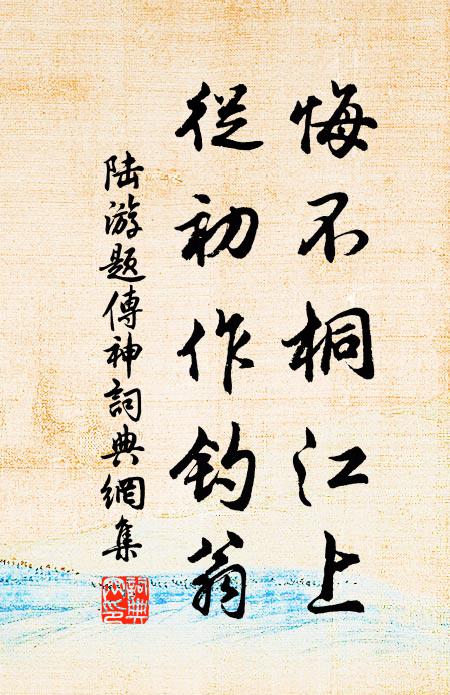 悔不桐江上
從初作钓翁
陆游題傳神詞典網集